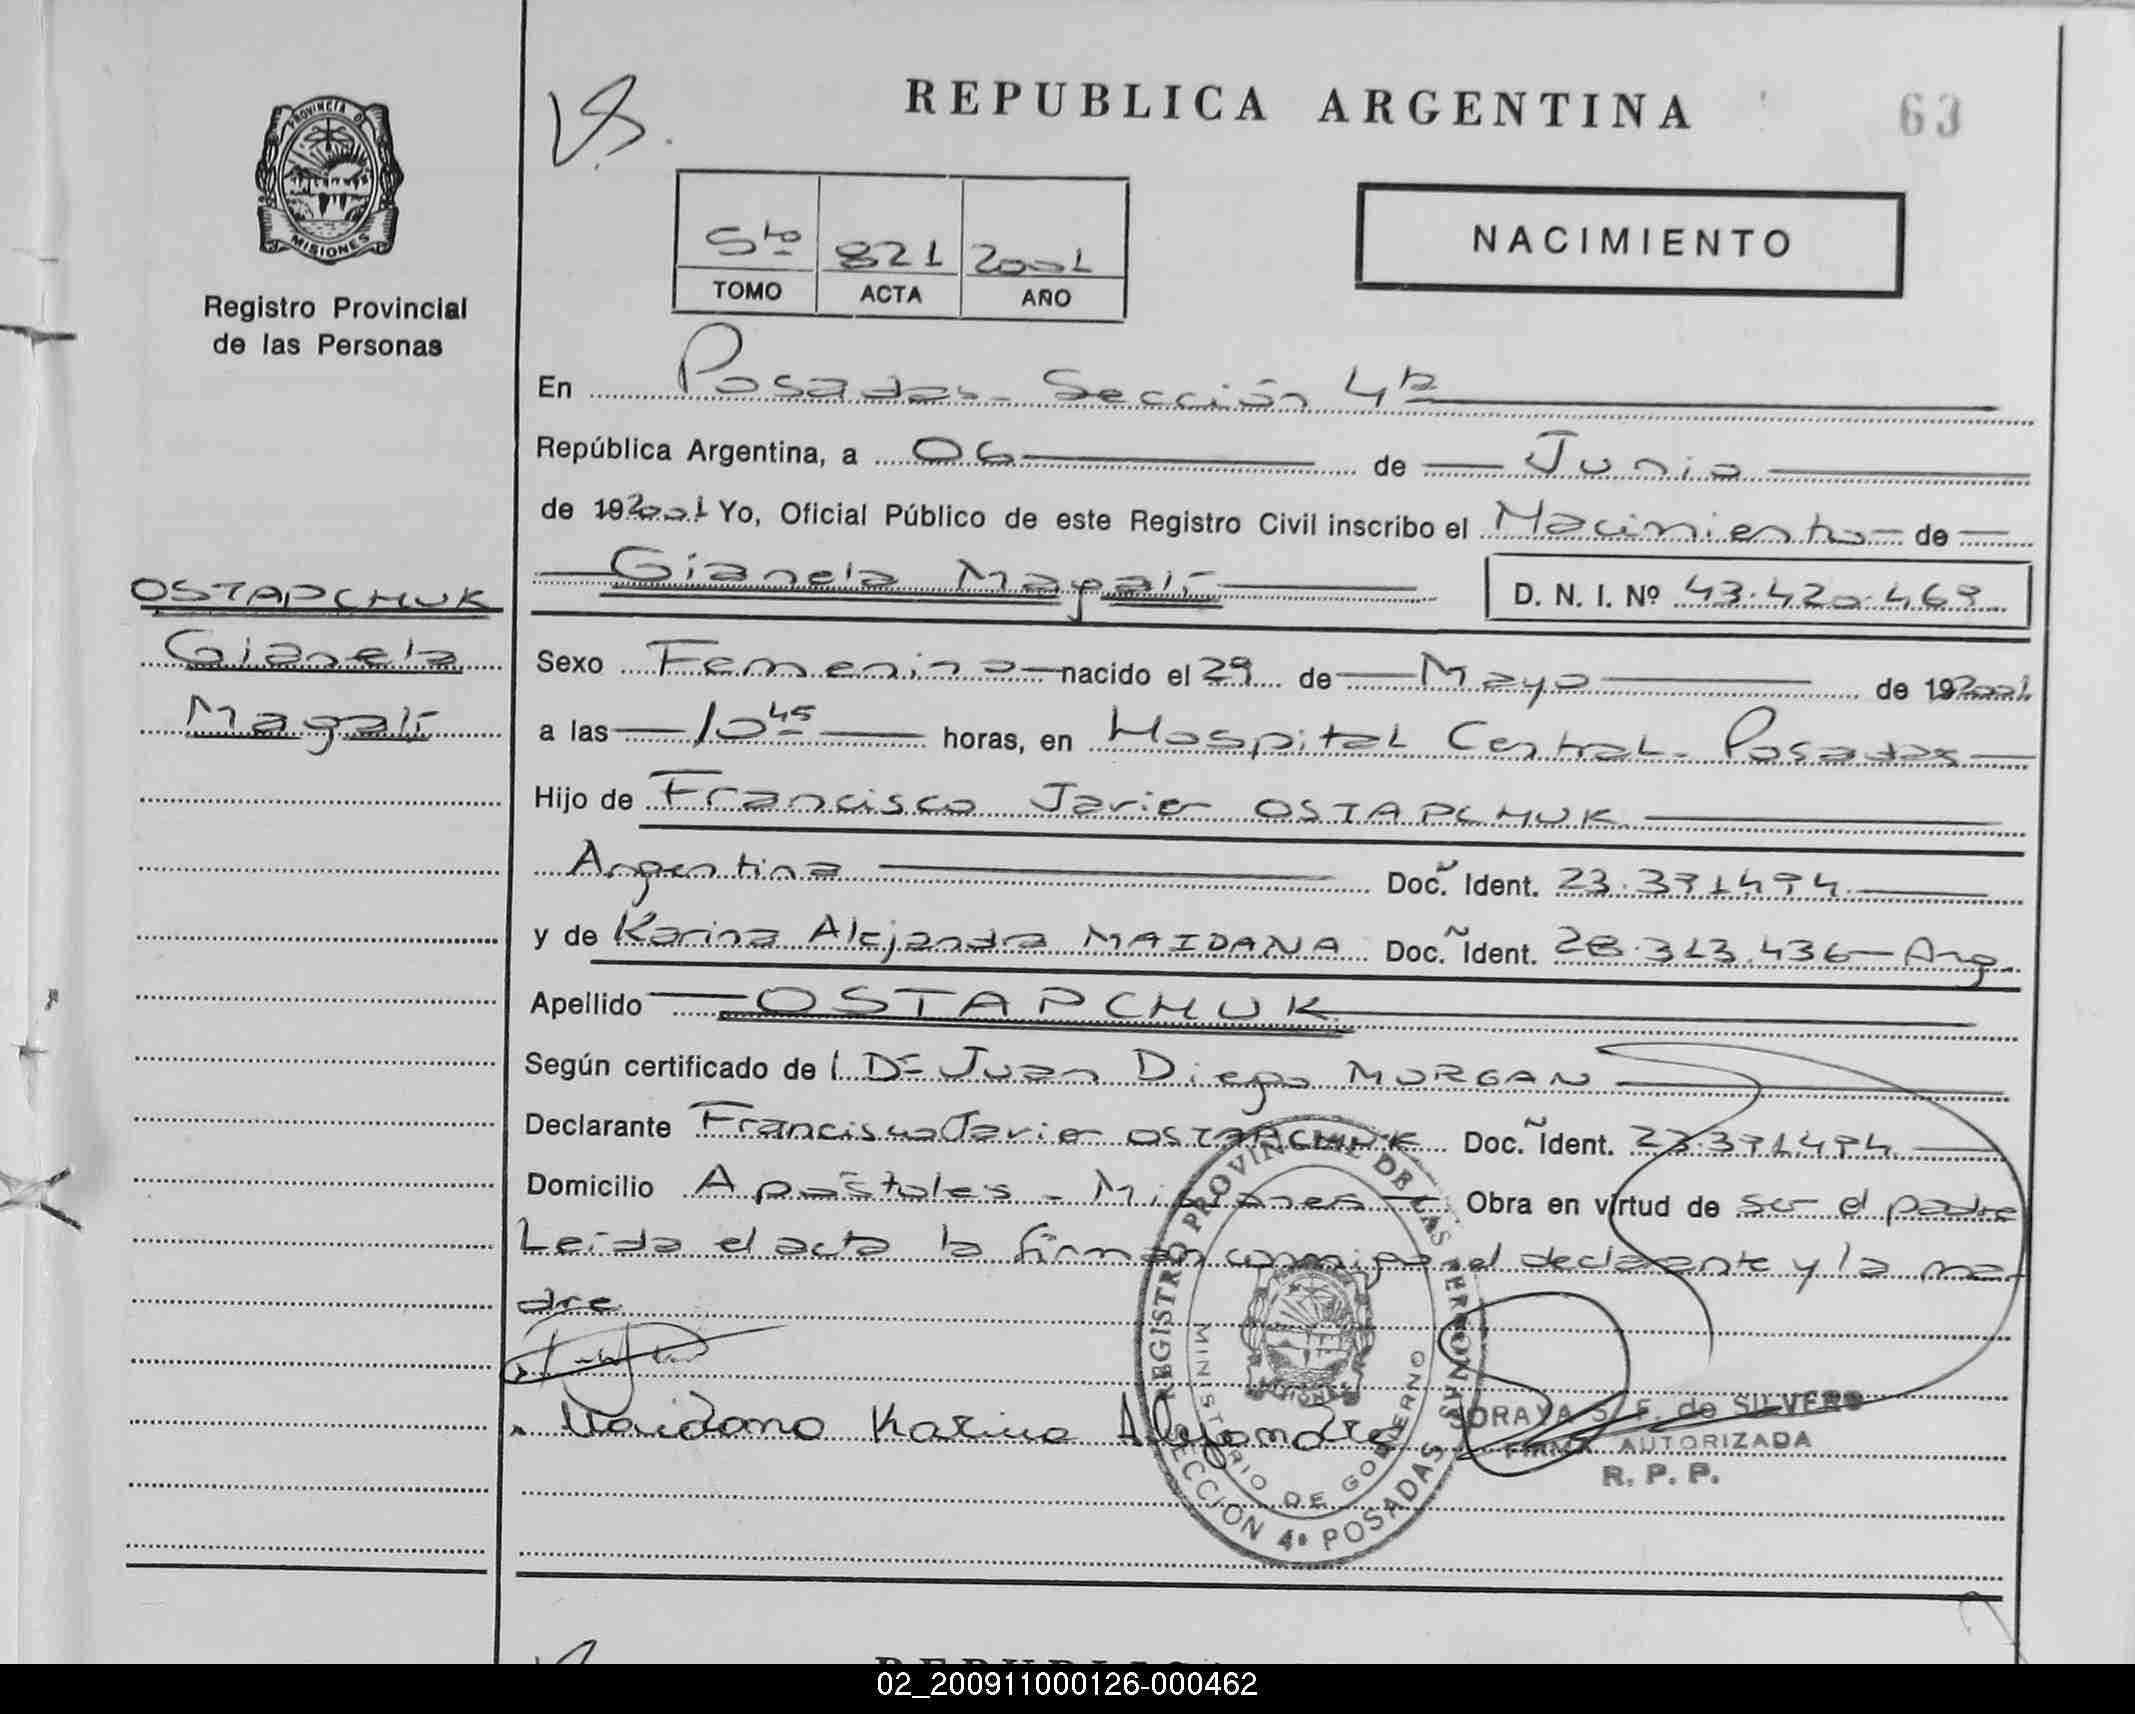 REPUBLICA ARGENTINA
63
PROVINCIA DE
MISIONES
Registro Provincial
de las Personas
5to 821 2001
TOMO ACTA AÑO
NACIMIENTO
En Posadas - Sección 4ta
República Argentina, a 06 de Junio
de 192001 Yo, Oficial Público de este Registro Civil inscribo el Nacimiento de
Gianela Magalí D. N. I. Nº 43.420.469
OSTAPCHUK
Gianela
Magalí
Sexo Femenino nacido el 29 de Mayo de 192001
a las 10 45 horas, en Hospital Central - Posadas
Hijo de Francisco Javier OSTAPCHUK
Argentina Doc. Ident.
y de Karina Alejandra MAIDANA Doc. Ident. 28.313.436 - Arg.
Apellido OSTAPCHUK
Según certificado de l Dr Juan Diego MORGAN
Declarante Francisco Javier OSTAPCHUK Doc. Ident.
Domicilio Apóstoles - Misiones Obra en virtud de ser el padre
Leída el acta la firman conmigo el declarante y la ma-
dre
Maidana Karina Alejandra
REGISTRO PROVINCIAL DE LAS PERSONAS
MINISTERIO DE GOBIERNO
SECCION 4ª POSADAS
SORAYA S. F. de SILVERO
FIRMA AUTORIZADA
R. P. P.
02_200911000126-000462